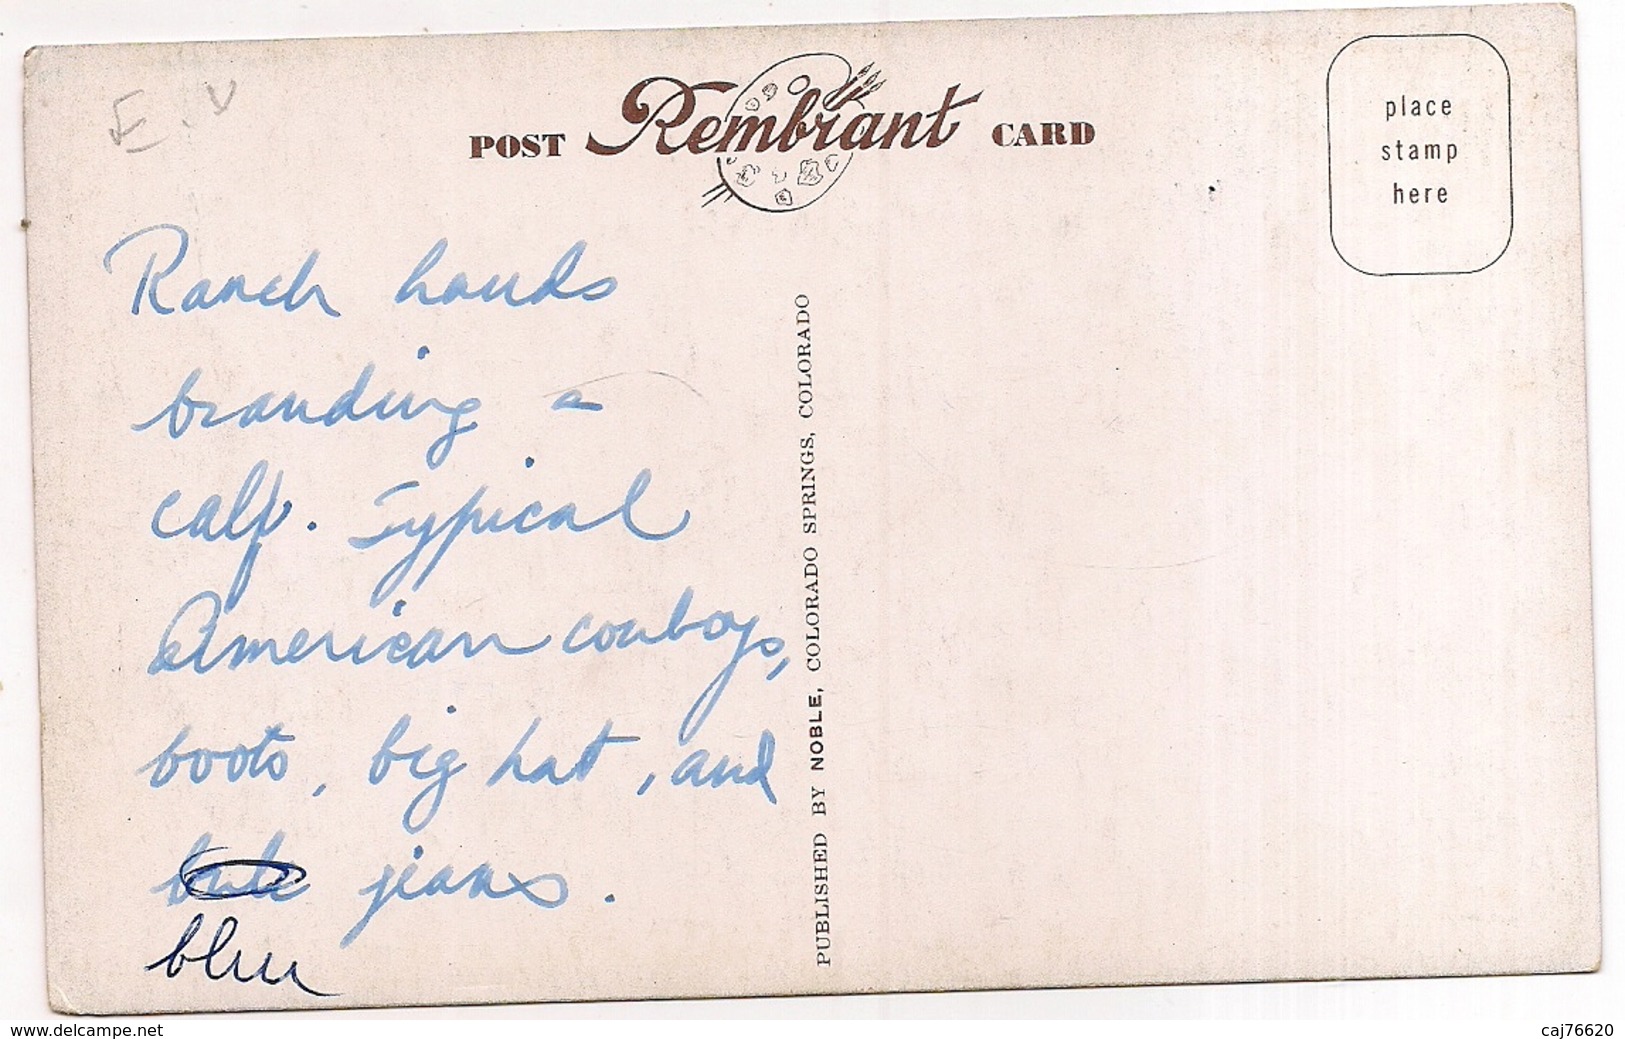 E.V
POST Rembrant CARD
place
stamp
here
Ranch hands
branding a
calf. Typical
American cowboys,
boots, big hat, and
jeans.
blue
PUBLISHED BY NOBLE, COLORADO SPRINGS, COLORADO
www.delcampe.net
caj76620